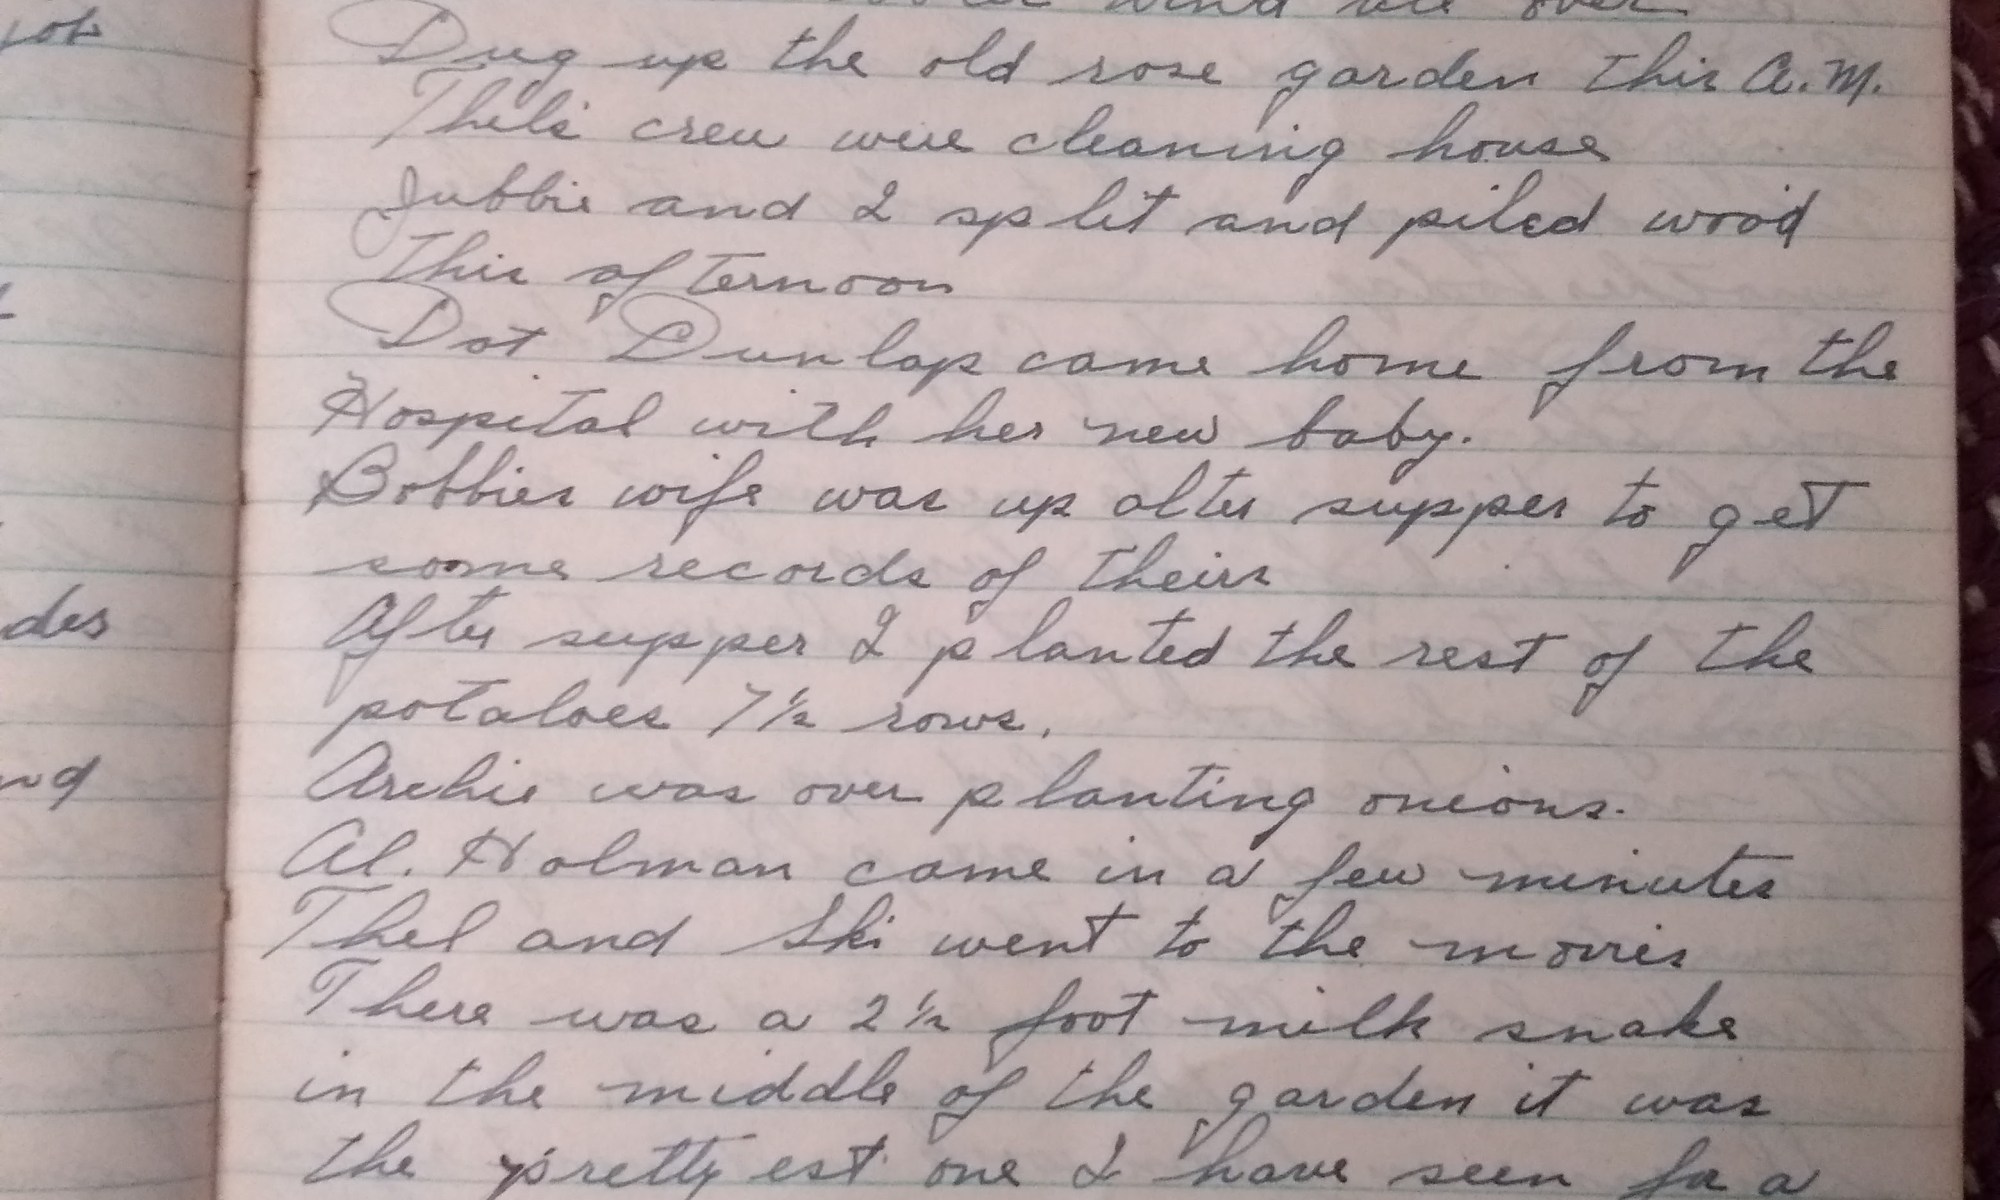 wind all over
Dug up the old rose garden this A.M.
Thels crew were cleaning house
Jubbie and I split and piled wood
this afternoon
Dot Dunlap came home from the
Hospital with her new baby.
Bobbies wife was up after supper to get
some records of theirs
After supper I planted the rest of the
potatoes 7 1/2 rows.
Archie was over planting onions.
Al. Holman came in a few minutes
Thel and Ski went to the movies
There was a 2 1/2 foot milk snake
in the middle of the garden it was
the prettyest one I have seen for a
job
des